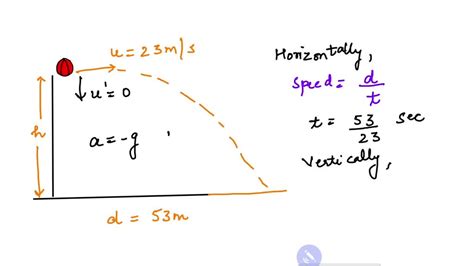 u = 23 m/s
u' = 0
h
a = -g ,
d = 53m
Horizontally,
Speed = d/t
t = 53/23 sec
Vertically,